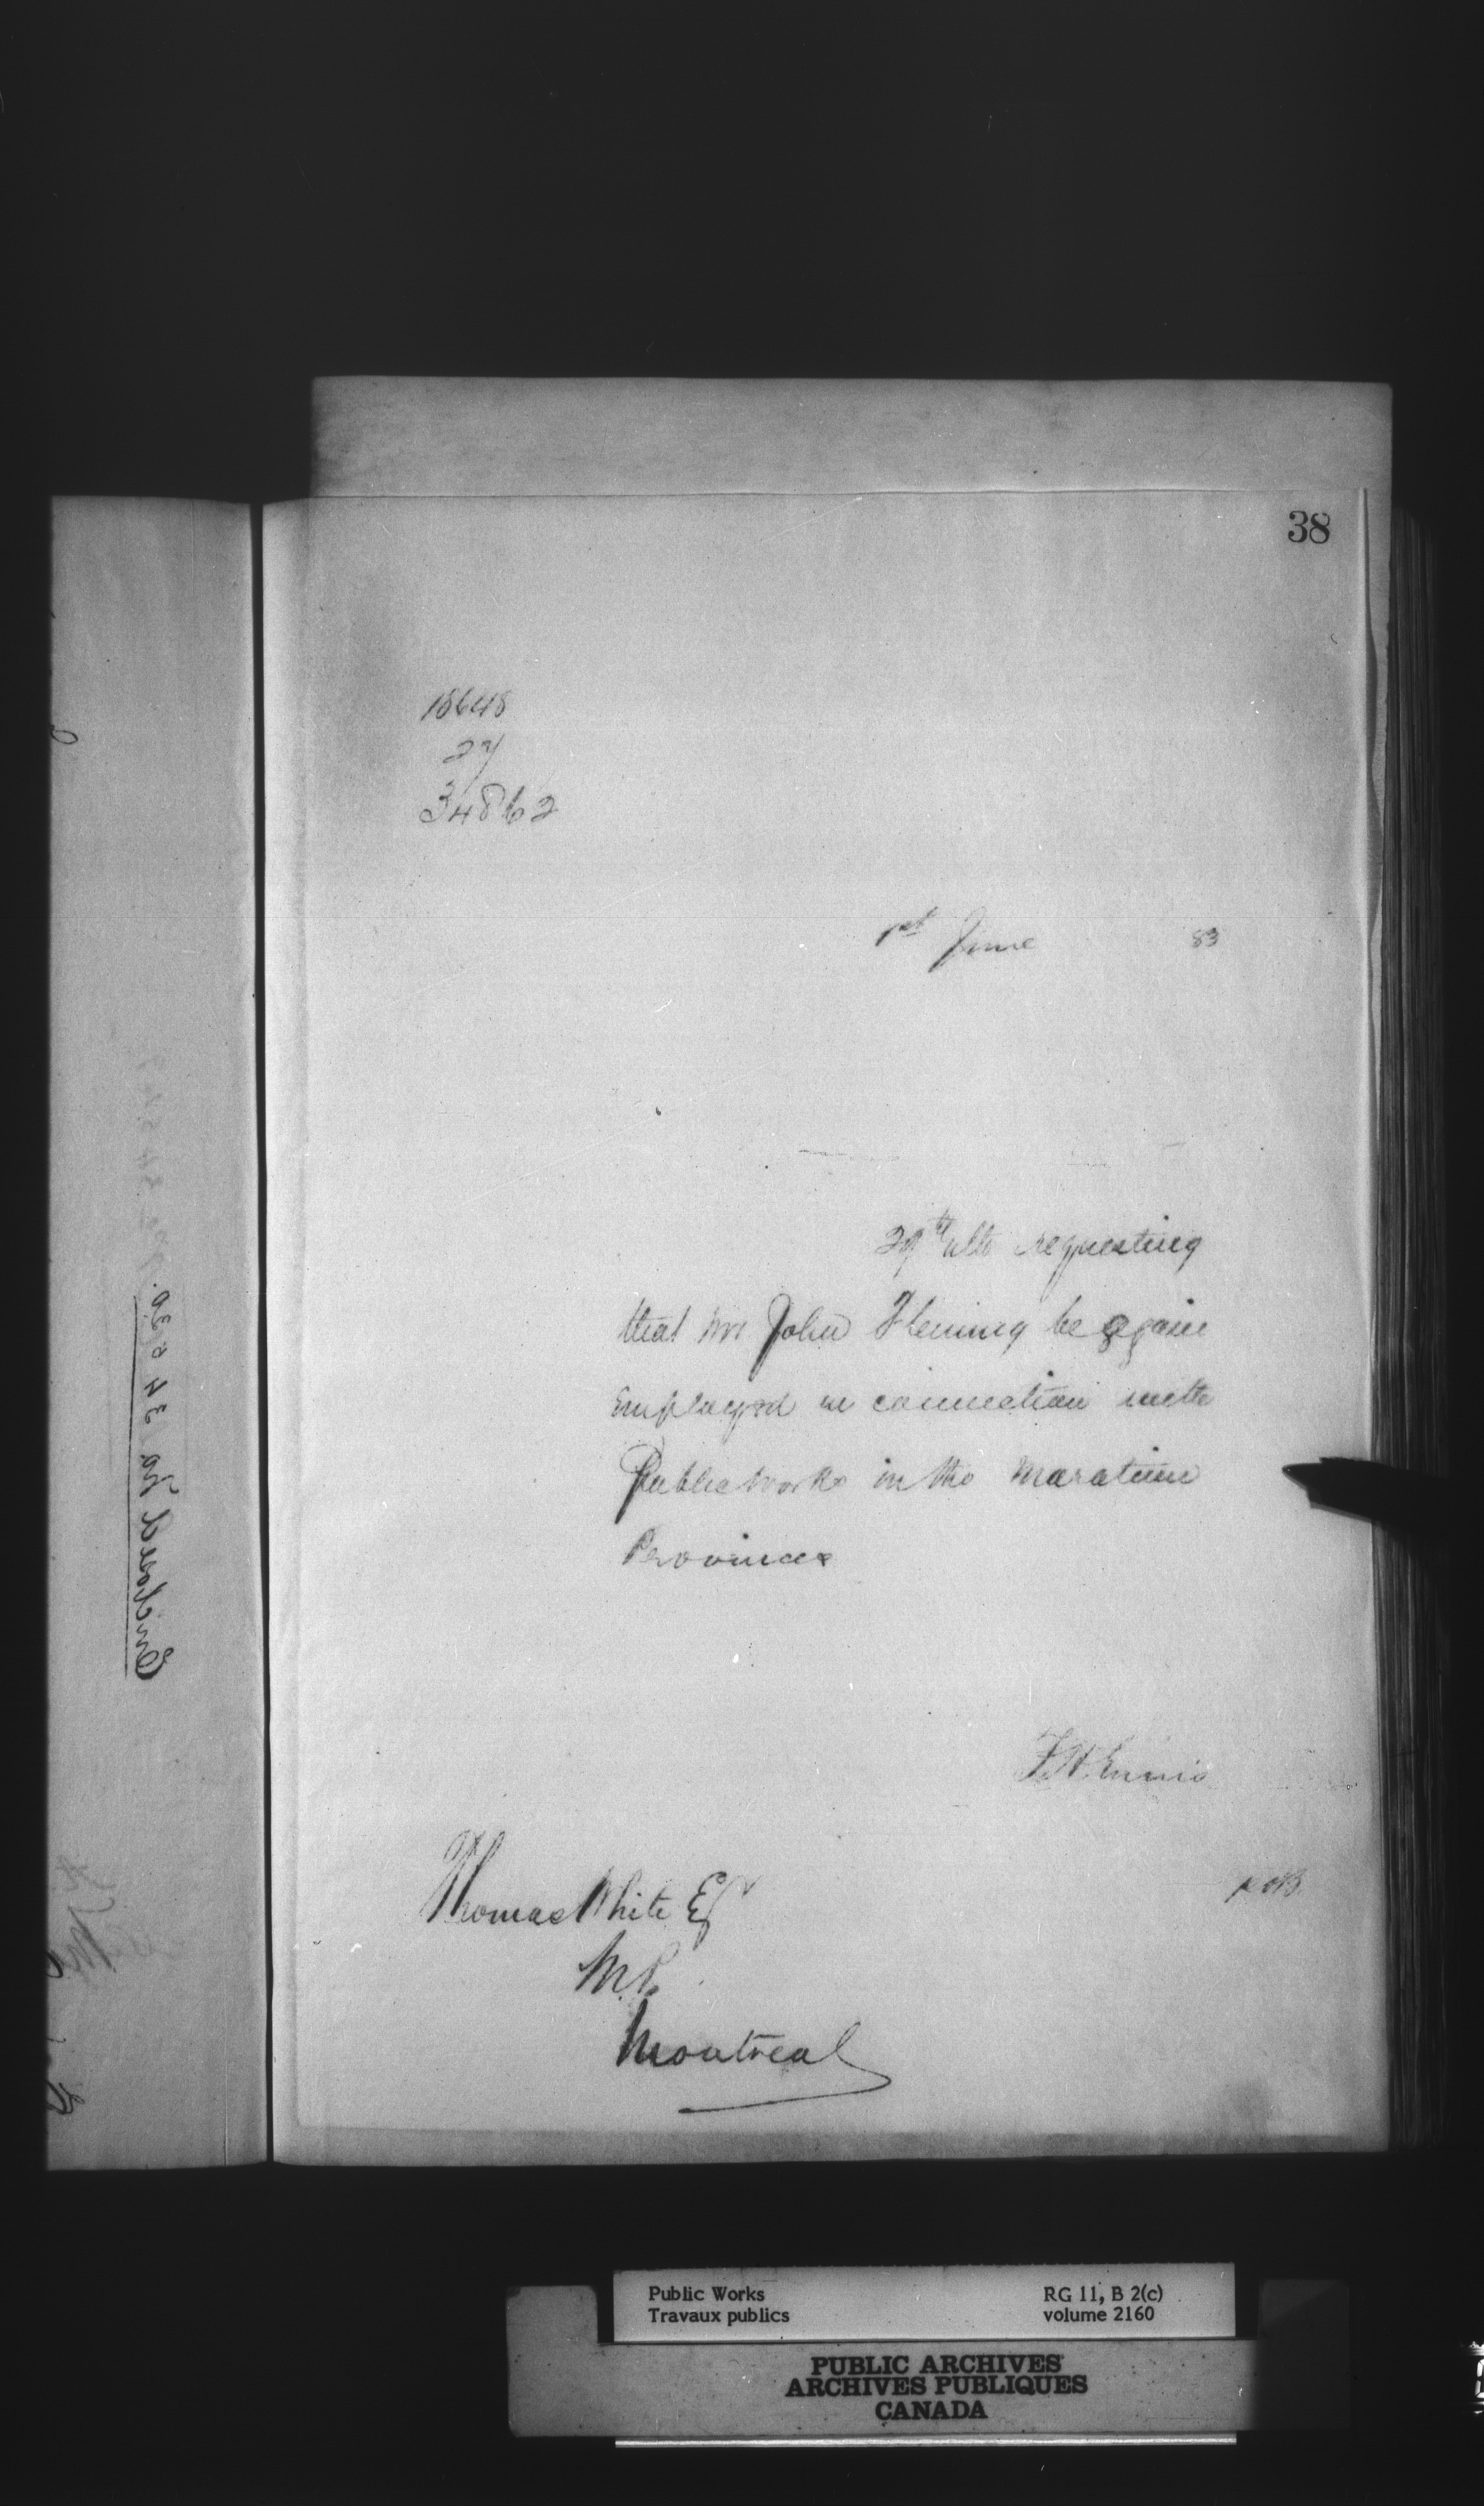 38
18648
27
34862
1st June 83
29th ulto requesting
that Mr John Fleming be again
employed in connection with
Public Works in the Maratime
Provinces
F.H. Ennis
Thomas White Esq
M.P.
Montreal
Enclosed No 34820.
Public Works
Travaux publics
RG 11, B 2(c)
volume 2160
PUBLIC ARCHIVES
ARCHIVES PUBLIQUES
CANADA